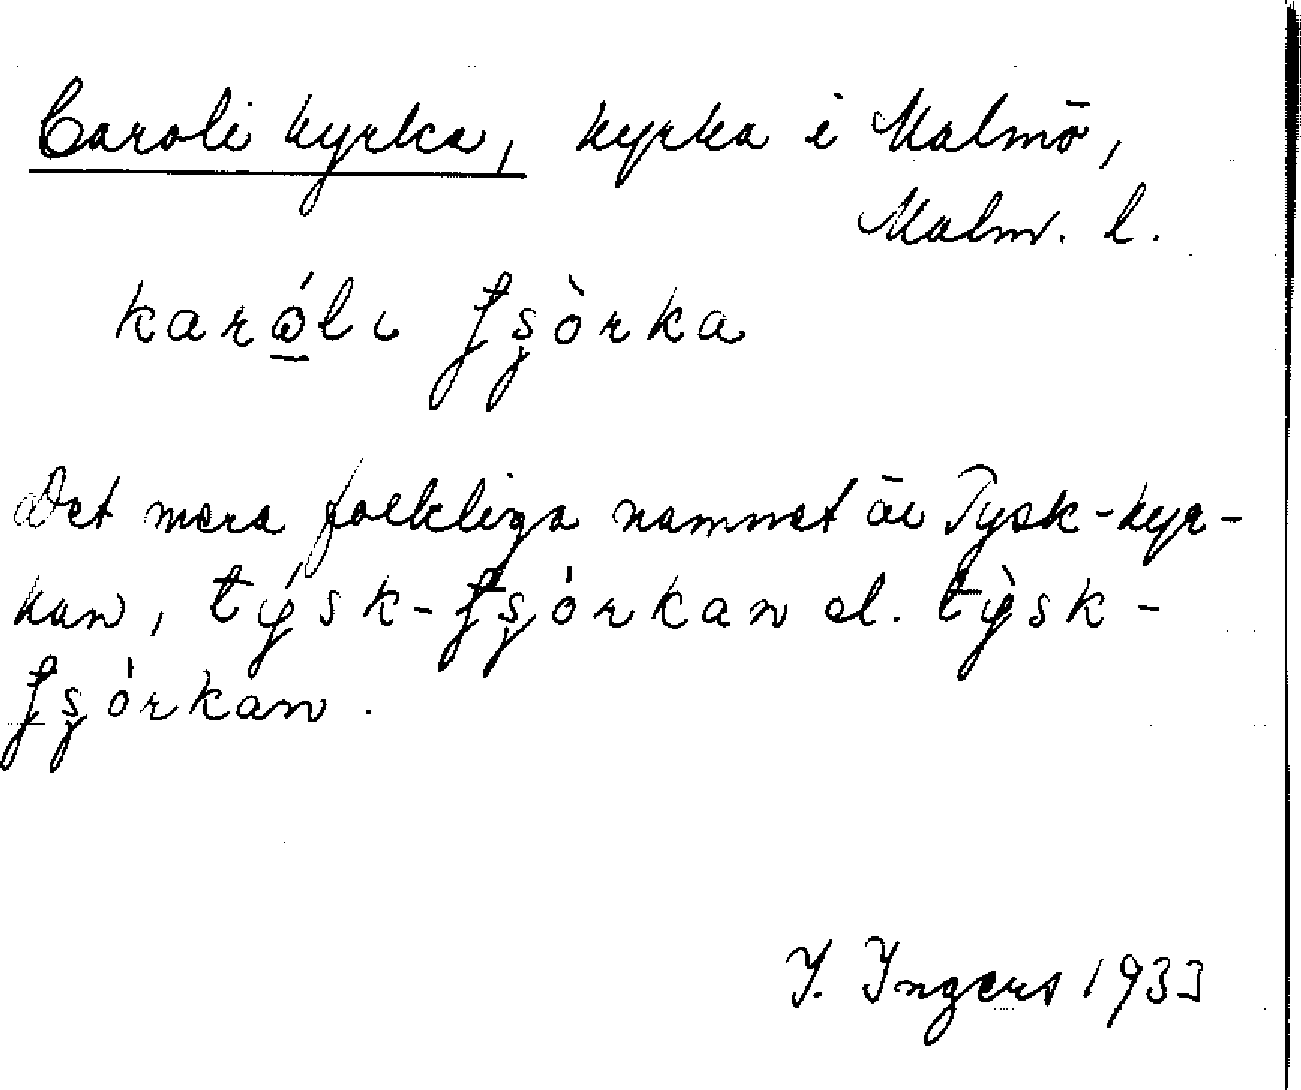 Caroli kyrka, kyrka i Malmö,
Malm. l.
karǫ́lι ʄşòrka
Det mera folkliga namnet är Tysk-kyr-
kan, týsk-ʄşórkan el. tỳsk-
ʄşórkan.
I. Ingers 1933